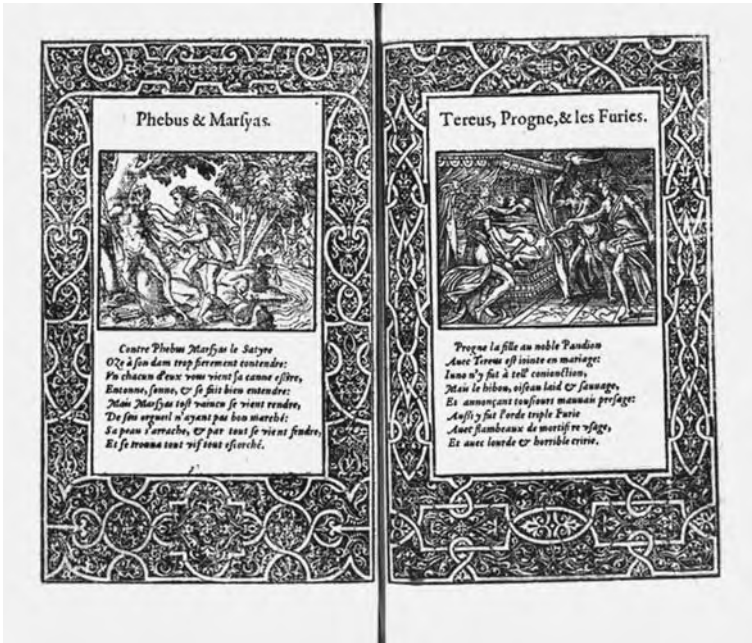 Phebus & Marſyas.
Contre Phebus Marſyas le Satyre
Oze à ſon dam trop fierement contendre:
Vn chacun d'eux vous vient ſa canne eſlire,
Entonne, ſonne, & ſe fait bien entendre:
Mais Marſyas toſt vaincu ſe vient rendre,
De ſon orgueil n'ayant pas bon marché:
Sa peau s'arrache, & par tout ſe vient fendre,
Et ſe trouua tout vif tout eſcorché.
Tereus, Progne, & les Furies.
Progne la fille au noble Pandion
Auec Tereus eſt iointe en mariage:
Iuno n'y fut à tell' conionction,
Mais le hibou, oiſeau laid & ſauuage,
Et annonçant touſiours mauuais preſage:
Auſſi y fut l'orde triple Furie
Auec flambeaux de mortifere vſage,
Et auec lourde & horrible cririe.